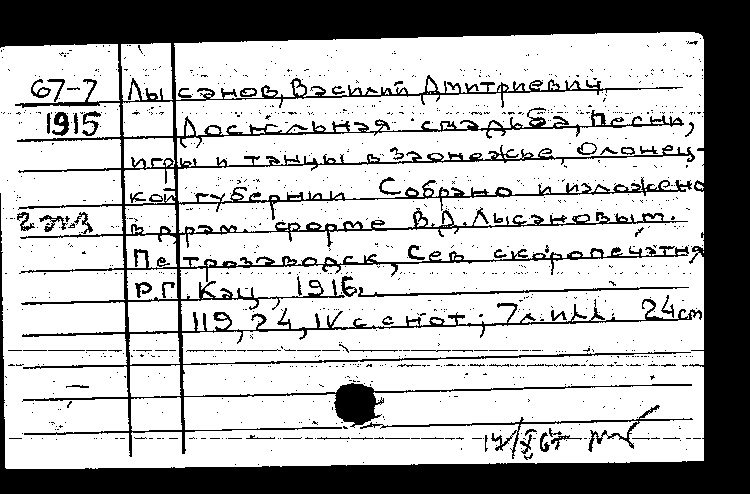 67-7 Лысанов, Василий Дмитриевич
1915 Досюльная свадьба, песни,
игры и танцы в Заонежье, Олонец-
кой губернии Собрано и изложено
2 экз в драм. форме В.Д. Лысановым.
Петрозаводск, Сев. скоропечатня
Р.Г. Кац, 1916.
119, 24, IV с. с нот.; 7 л. илл. 24 cm
17/X 67